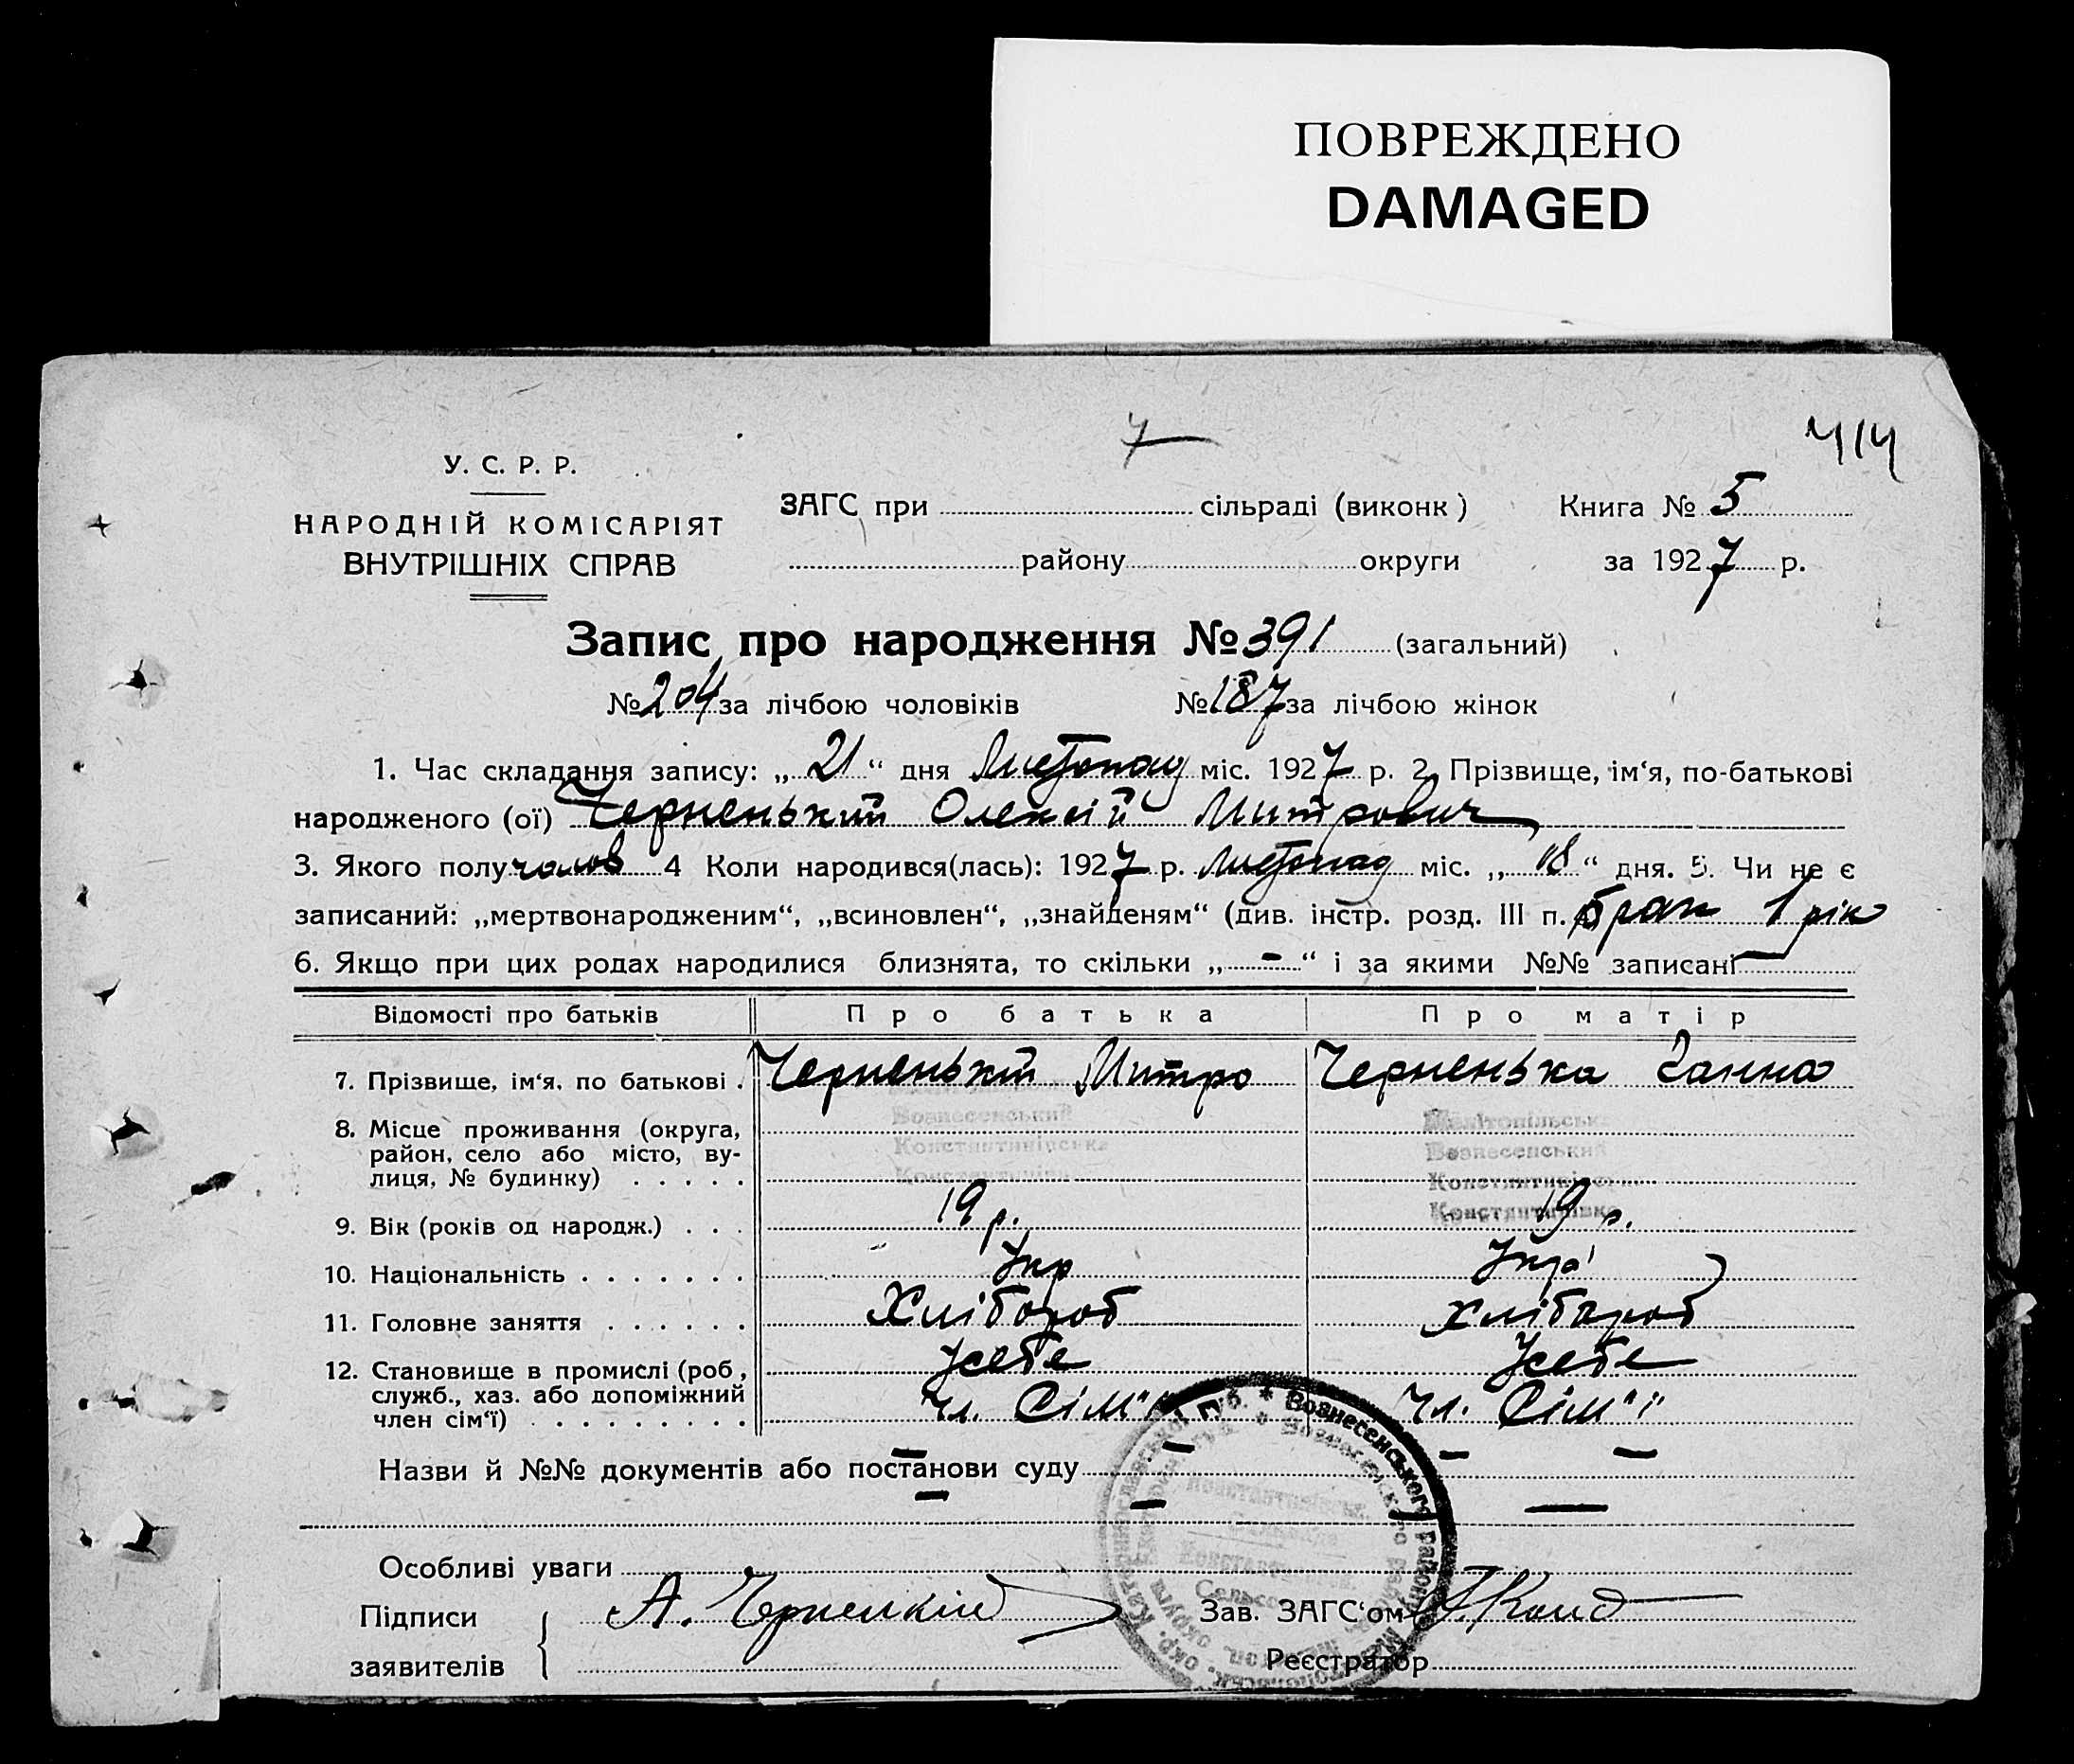 ПОВРЕЖДЕНО
DAMAGED
7
414
У. С. Р. Р.
НАРОДНІЙ КОМІСАРІЯТ
ВНУТРІШНІХ СПРАВ
ЗАГС при сільраді (виконк) Книга № 5
району округи за 1927 р.
Запис про народження № 391 (загальний)
№ 204 за лічбою чоловіків № 187 за лічбою жінок
1. Час складання запису: „21“ дня Листопад міс. 1927 р. 2. Прізвище, ім‘я, по-батькові
народженого (ої) Черненький Олексій Митрович
3. Якого полу чолов 4 Коли народився(лась): 1927 р. листопад міс. „18“ дня. 5. Чи не є
записаний: „мертвонародженим“, „всиновлен“, „знайденям“ (див. інстр. розд. III п. брак 1 рік
6. Якщо при цих родах народилися близнята, то скільки „-“ і за якими №№ записані
Відомості про батьків Про батька Про матір
7. Прізвище, ім‘я, по батькові . Черненький Митро Черненька Ганна
8. Місце проживання (округа, район, село або місто, ву-
лиця, № будинку) . . . . .
Вознесенський
Константинівська
Мелітопільська
Вознесенський
Константинівська
Константинівка
9. Вік (років од народж.) . . . 19 р. 19 р.
10. Національність . . . . . . . Укр Укр
11. Головне заняття . . . . . . Хлібороб хлібороб
12. Становище в промислі (роб, Усебе Усебе
служб., хаз. або допоміжний
член сім‘ї) . . . . . . . . чл. Сім"ї чл. Сім"ї
Назви й №№ документів або постанови суду
Вознесенського району
Особливі уваги
Підписи А. Зав. ЗАГС‘ом
заявителів Реєстратор